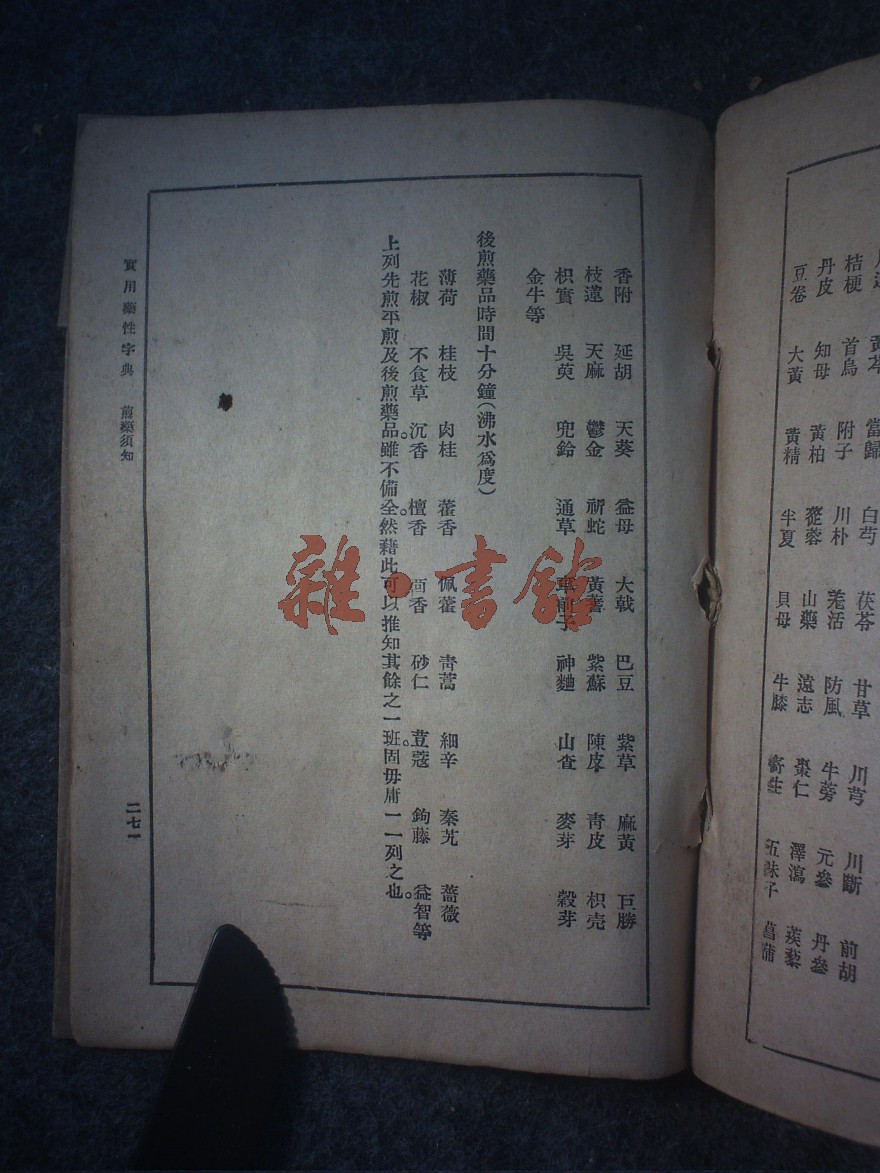 黃芩 當歸 白芍 茯苓 甘草 川芎 川斷 前胡
桔梗 首烏 附子 川朴 羌活 防風 牛蒡 元參 丹參
丹皮 知母 黃柏 蓯蓉 山藥 遠志 棗仁 澤瀉 蒺藜
豆卷 大黃 黃精 半夏 貝母 牛膝 寄生 五味子 菖蒲
香附 延胡 天葵 益母 大戟 巴豆 紫草 麻黃 巨勝
枝蓮 天麻 鬱金 祈蛇 黃蓍 紫蘇 陳皮 青皮 枳壳
枳實 吳萸 兜鈴 通草 車前子 神麯 山查 麥芽 穀芽
金牛等
後煎藥品時間十分鐘(沸水爲度)
薄荷 桂枝 肉桂 藿香 佩藿 青蒿 細辛 秦艽 薔薇
花椒 不食草 沉香 檀香 茴香 砂仁 荳蔻 鉤藤 益智等
上列先煎平煎及後煎藥品。雖不備全。然藉此可以推知其餘之一班。固毋庸一一列之也。
實用藥性字典 煎藥須知
二七一
雜·書館